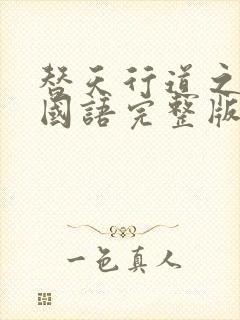 替天行道之
國語完整版
一色真人